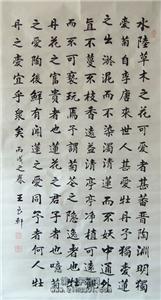 水陸草木之花可愛者甚蕃晉陶淵明獨
愛菊自李唐來世人甚愛牡丹予獨愛蓮
之出淤泥而不染濯清漣而不妖中通外
直不蔓不枝香遠益清亭亭淨植可遠觀
而不可褻玩焉予謂菊花之隱逸者也牡
丹花之富貴者也蓮花之君子者也噫菊
之愛陶後鮮有聞蓮之愛同予者何人牡
丹之愛宜乎衆矣 丙戌之春 王